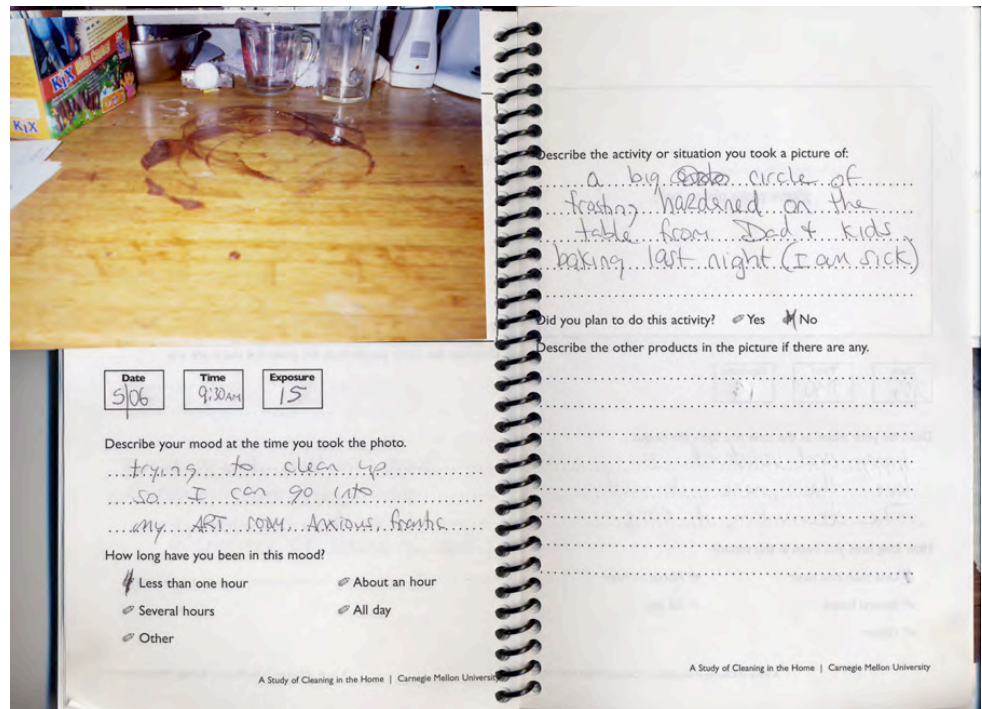 KiX
KiX
Date
Time
Exposure
5/06
9:30 AM
15
Describe your mood at the time you took the photo.
trying to clean up
so I can go into
my ART room. Anxious, frantic
How long have you been in this mood?
Less than one hour
About an hour
Several hours
All day
Other
A Study of Cleaning in the Home | Carnegie Mellon University
Describe the activity or situation you took a picture of:
a big circle of
frosting hardened on the
table from Dad & kids
baking last night (I am sick)
Did you plan to do this activity? Yes No
Describe the other products in the picture if there are any.
A Study of Cleaning in the Home | Carnegie Mellon University